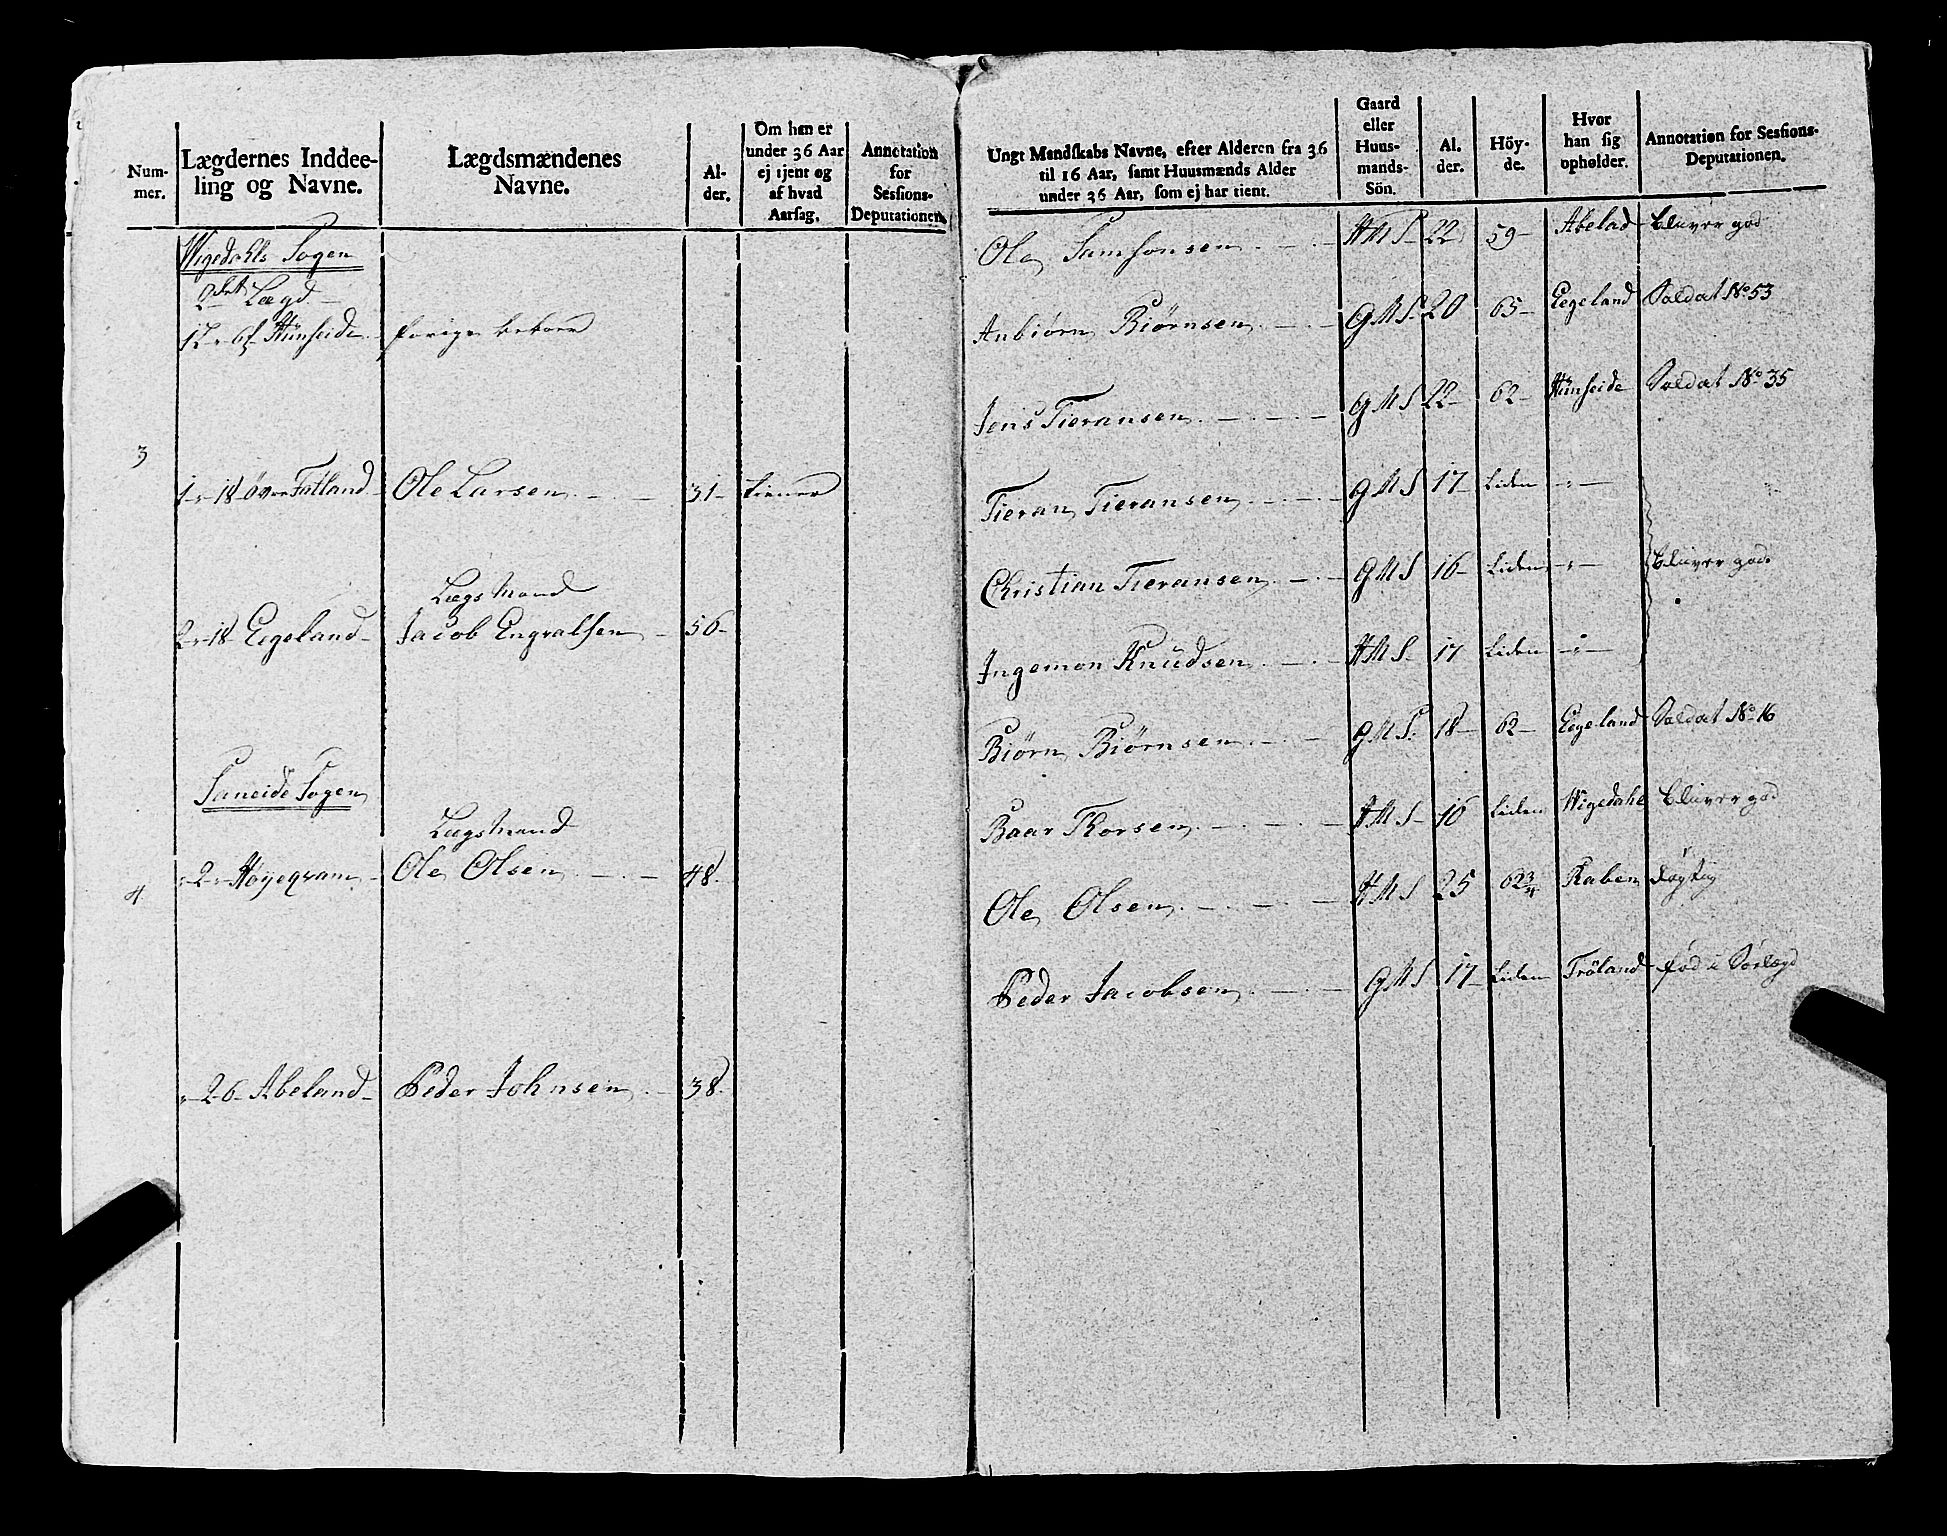 Num-
mer.
Lægdernes Inddee-
ling og Navne.
Lægdsmændenes
Navne.
Al-
der.
Om han er
under 36 Aar
ej tjent og
af hvad
Aarsag.
Annotation
for
Sessions-
Deputationen
Wigedahls Sogen
2det Lægd
12 - 6f Hünseide forige beboer
3
1 - 18 Øvre Fatland Ole Larsen 31 tiener
Lægsmand
2 - 18 Eegeland Jacob Engvalsen 56
Saneide Sogen
Lægsmand
4
2 - Høyeqvam Ole Olsen 48
26 Abeland Peder Johnsen 38
Ungt Mandskabs Navne, efter Alderen fra 36
til 16 Aar, samt Huusmænds Alder
under 36 Aar, som ej har tient.
Gaard
eller
Huus-
mands-
Sön.
Al.
der.
Höy-
de.
Hvor
han sig
opholder.
Annotation for Sessions-
Deputationen.
Ole Samsonsen HMS 22 59 Abelad bliver god
Anbiørn Biørnsen GMS 20 65 Eegeland Soldat No 53
Jens Tieransen GMS 22 62 Hünseide Soldat No 35
Tieran Tieransen GMS 17 Liden
Christian Tieransen GMS 16 Liden bliver god
Ingemon Knudsen HMS 17 Liden
Biørn Biørnsen GMS 18 62 Eegeland Soldat No 16
Baar Thorsen HMS 16 Liden Wigedahl bliver god
Ole Olsen HMS 25 62 3/4 Raben døgtig
Peder Jacobsen GMS 17 Liden Trøland fød i Sørlægd